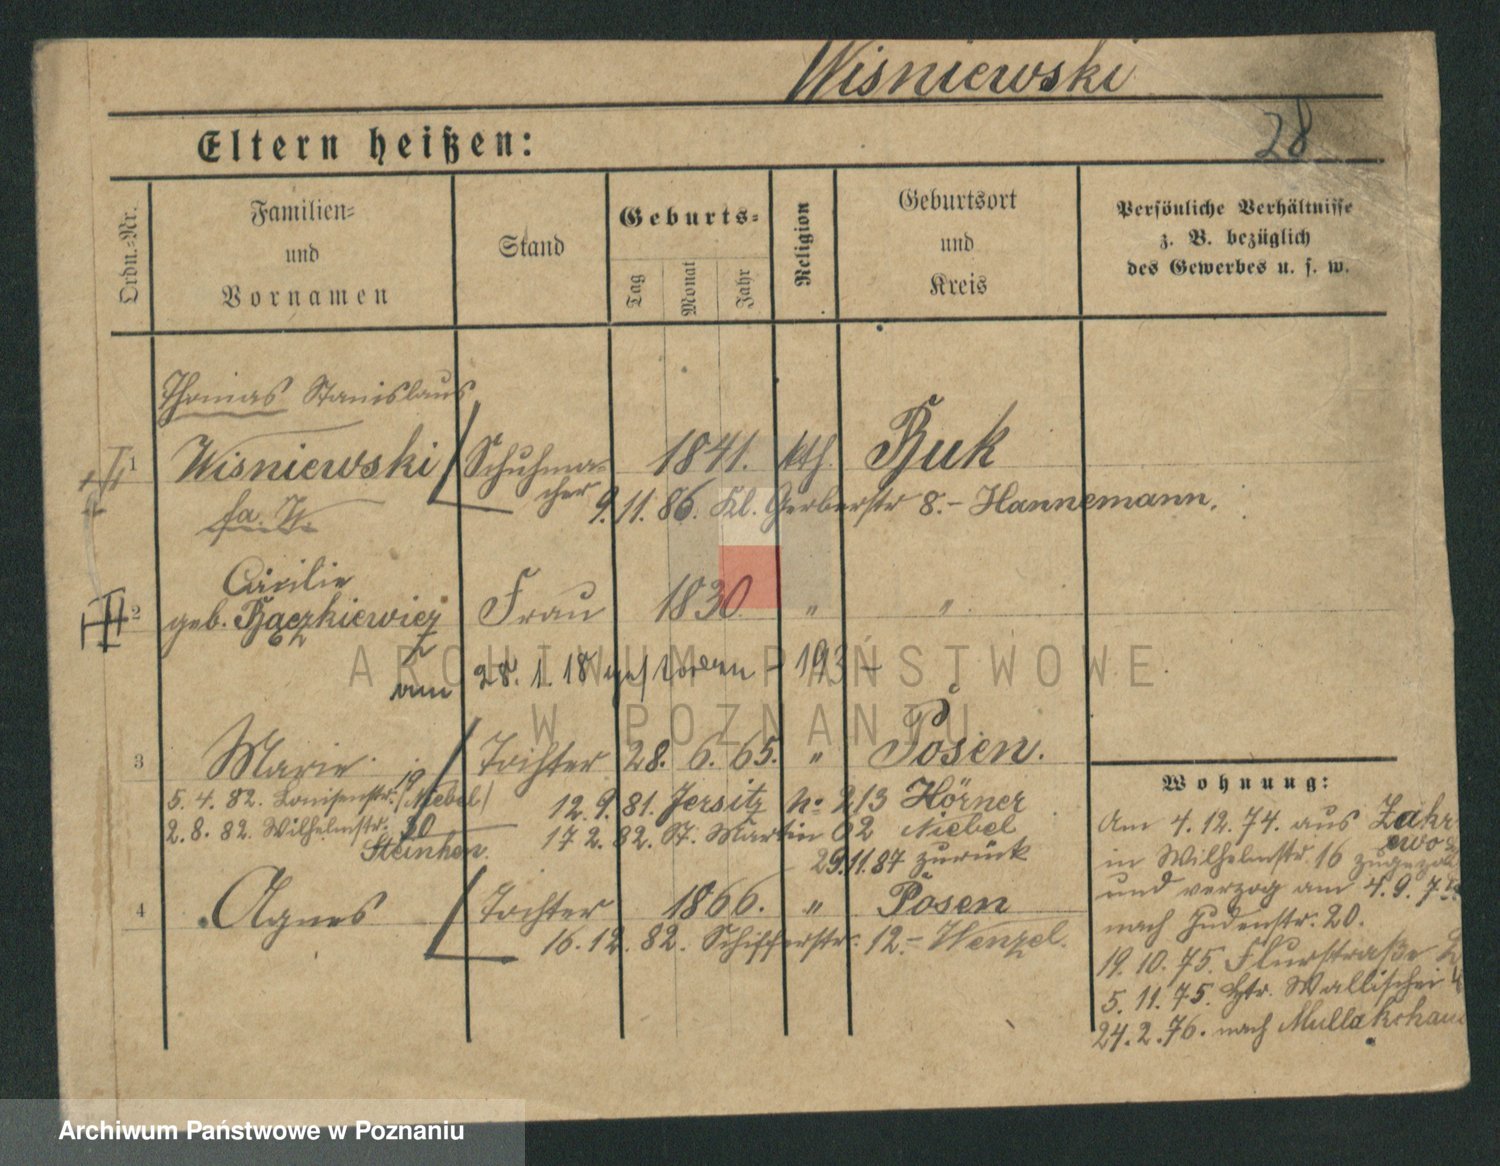 Wisniewski
28
Eltern heißen:
Ordn.-Nr.
Familien-
und
Vornamen
Stand
Geburts-
Tag
Monat
Jahr
Religion
Geburtsort
und
Kreis
Persönliche Verhältnisse
z. B. bezüglich
des Gewerbes u. s. w.
Thomas Stanislaus
1 Wisniewski Schuhma- 1841. kth. Buk
cher 9.11.86. Kl. Gerberstr 8.- Hannemann.
Cäcilie
2 geb. Baczkiewicz Frau 1830 " "
62
am 28. 1. 18
3 Marie Tochter 28. 6. 65. " Posen.
5. 4. 82. Louisenstr. 19 (Niebel)
12. 9. 81. Jersitz No 213 Hörner
2. 8. 82. Wilhelmstr. 20
Steinhen.
17 2. 82. St. Martin 62 Niebel
29.11.87 zurück
4 Agnes Tochter 1866. " Posen
16. 12. 82. Schifferstr. 12.- Wenzel.
Wohnung:
Am 4. 12. 74. aus Zakr
ewo
in Wilhelmstr. 16
und verzog am 4. 9. 75
nach Judenstr. 20.
19. 10. 75. Flurstraße
5. 11. 75. Htr. Wallischei
24. 2. 76. nach Mullakshau
ARCHIWUM PAŃSTWOWE
W POZNANIU
Archiwum Państwowe w Poznaniu